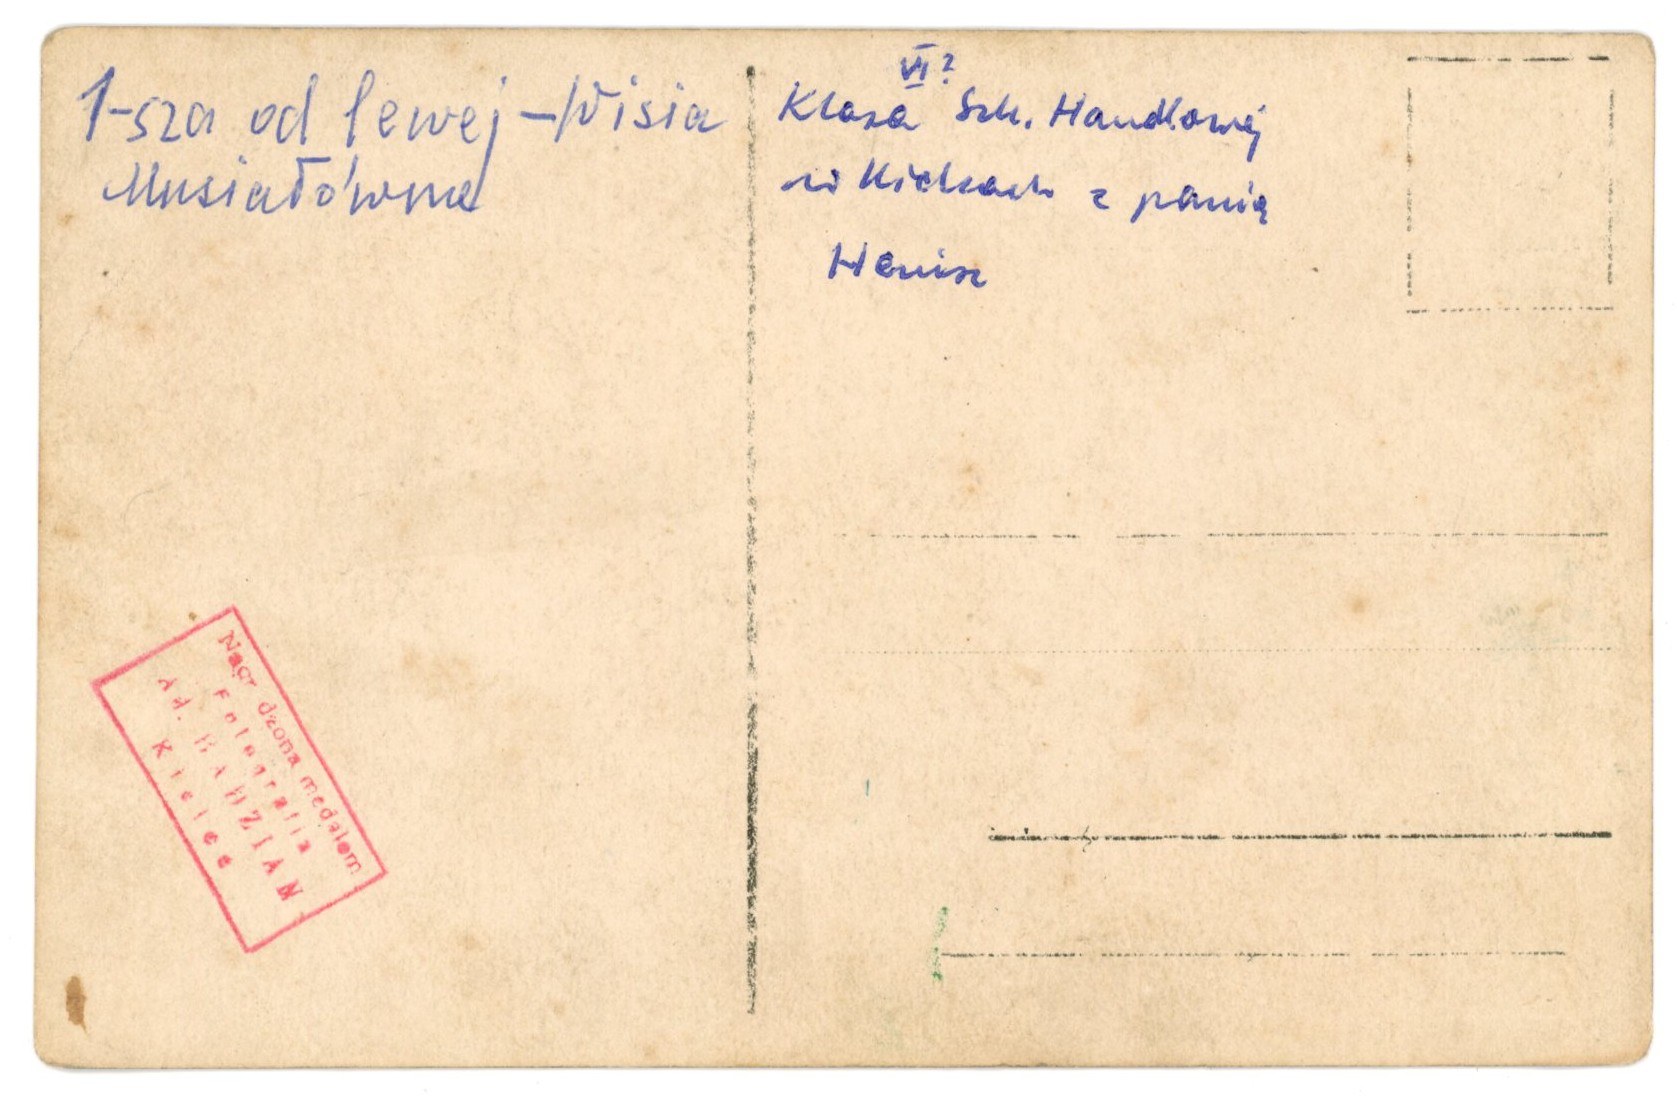 1-sza od lewej – Wisia
Musiałówna
VI?
Klasa Szk. Handlowej
w Kielcach z panią
Henisz
Nagr dzona medalem
Fotografia
Ad. BADZIAN
Kielce